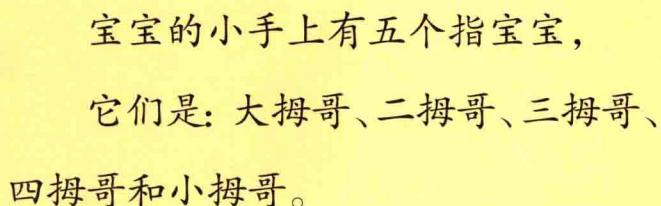 宝宝的小手上有五个指宝宝，
它们是：大拇哥、二拇哥、三拇哥、
四拇哥和小拇哥。